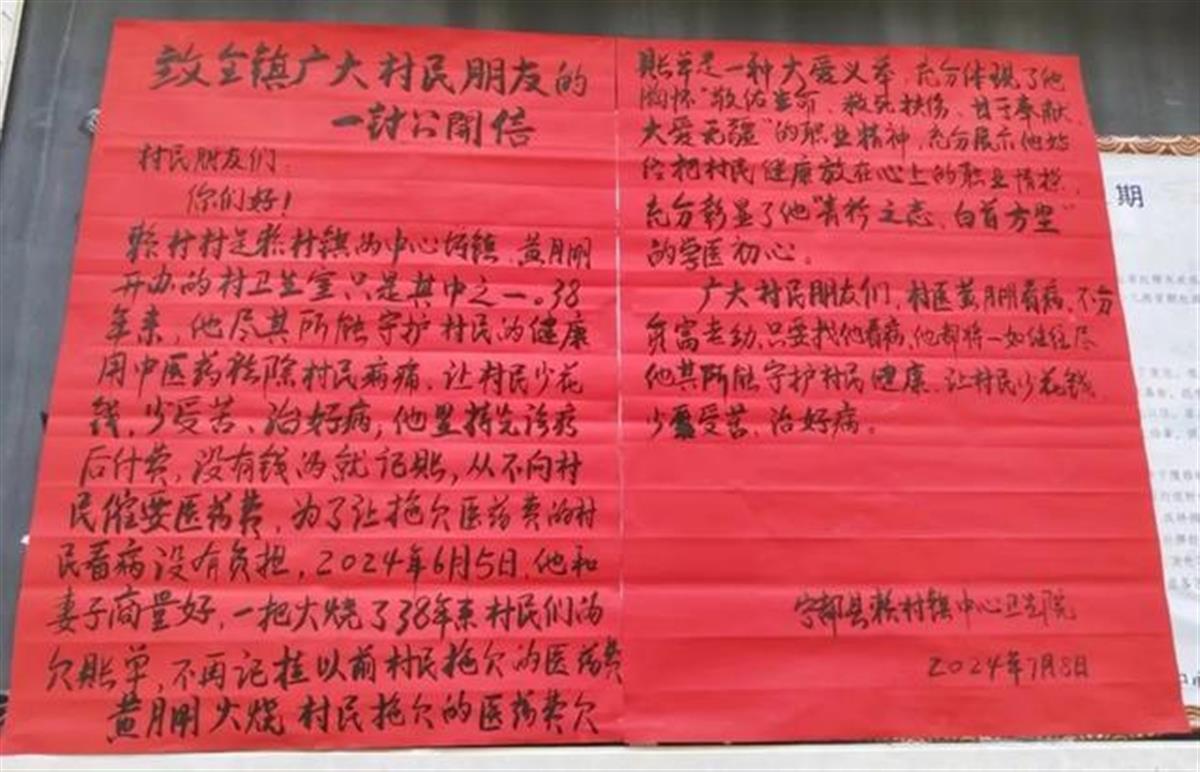 致全镇广大村民朋友的
一封公開信
村民朋友们:
你们好!
赖村村是赖村镇的中心圩镇,黄月朋
开办的村卫生室只是其中之一。38
年来,他尽其所能守护村民的健康
用中医药祛除村民病痛、让村民少花
钱,少受苦、治好病,他坚持先诊疗
后付费,没有钱的就记账,从不向村
民催要医药费,为了让拖欠医药费的村
民看病没有负担,2024年6月5日,他和
妻子商量好,一把火烧了38年来村民们的
欠账单,不再记挂以前村民拖欠的医药费
黄月朋火烧村民拖欠的医药费欠
账单是一种大爱义举,充分体现了他
胸怀"敬佑生命、救死扶伤、甘于奉献
大爱无疆"的职业精神,充分展示他始
终把村民健康放在心上的职业情操,
充分彰显了他"青衿之志、白首方坚"
的学医初心。
广大村民朋友们,村医黄月朋看病,不分
贫富老幼,只要找他看病,他都将一如继往尽
他其所能守护村民健康、让村民少花钱,
少受苦、治好病。
宁都县赖村镇中心卫生院
2024年7月8日
期